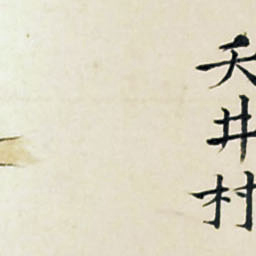 天井村